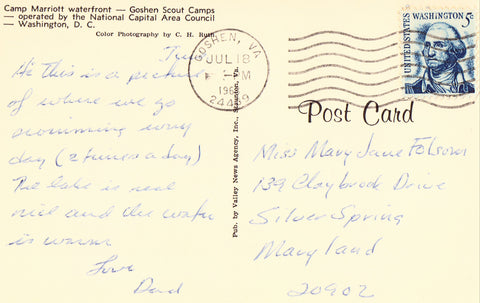 Camp Marriott waterfront — Goshen Scout Camps
— operated by the National Capital Area Council
— Washington, D. C.
Color Photography by C. H. Ruth
Hi this is a picture
of where we go
swimming every
day (2 times a day)
The lake is real
nice and the water
is warm
Love
Dad
Pub. by Valley News Agency, Inc., Staunton, Va.
GOSHEN, VA
JUL 18
PM
24439
UNITED STATES
WASHINGTON 5c
Post Card
Miss Mary Jane Folsom
139 Claybrook Drive
Silver Spring
Maryland
20902